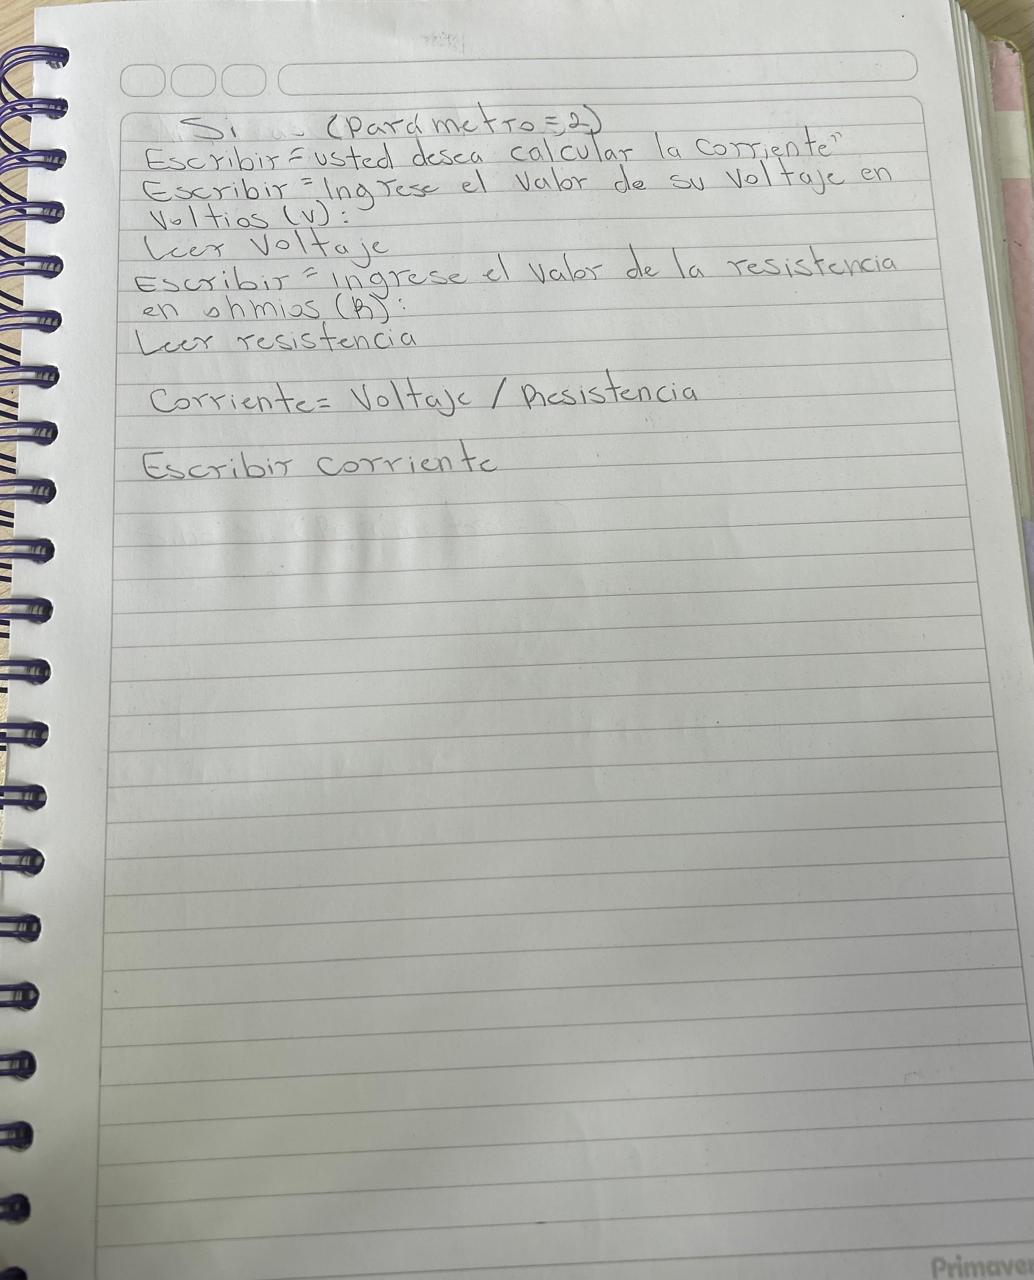 Si (Parámetro=2)
Escribir="usted desea calcular la corriente"
Escribir="Ingrese el valor de su voltaje en
Voltios (V):
Leer Voltaje
Escribir="ingrese el valor de la resistencia
en ohmios (R):
Leer resistencia
Corriente= Voltaje / Resistencia
Escribir corriente
Primave